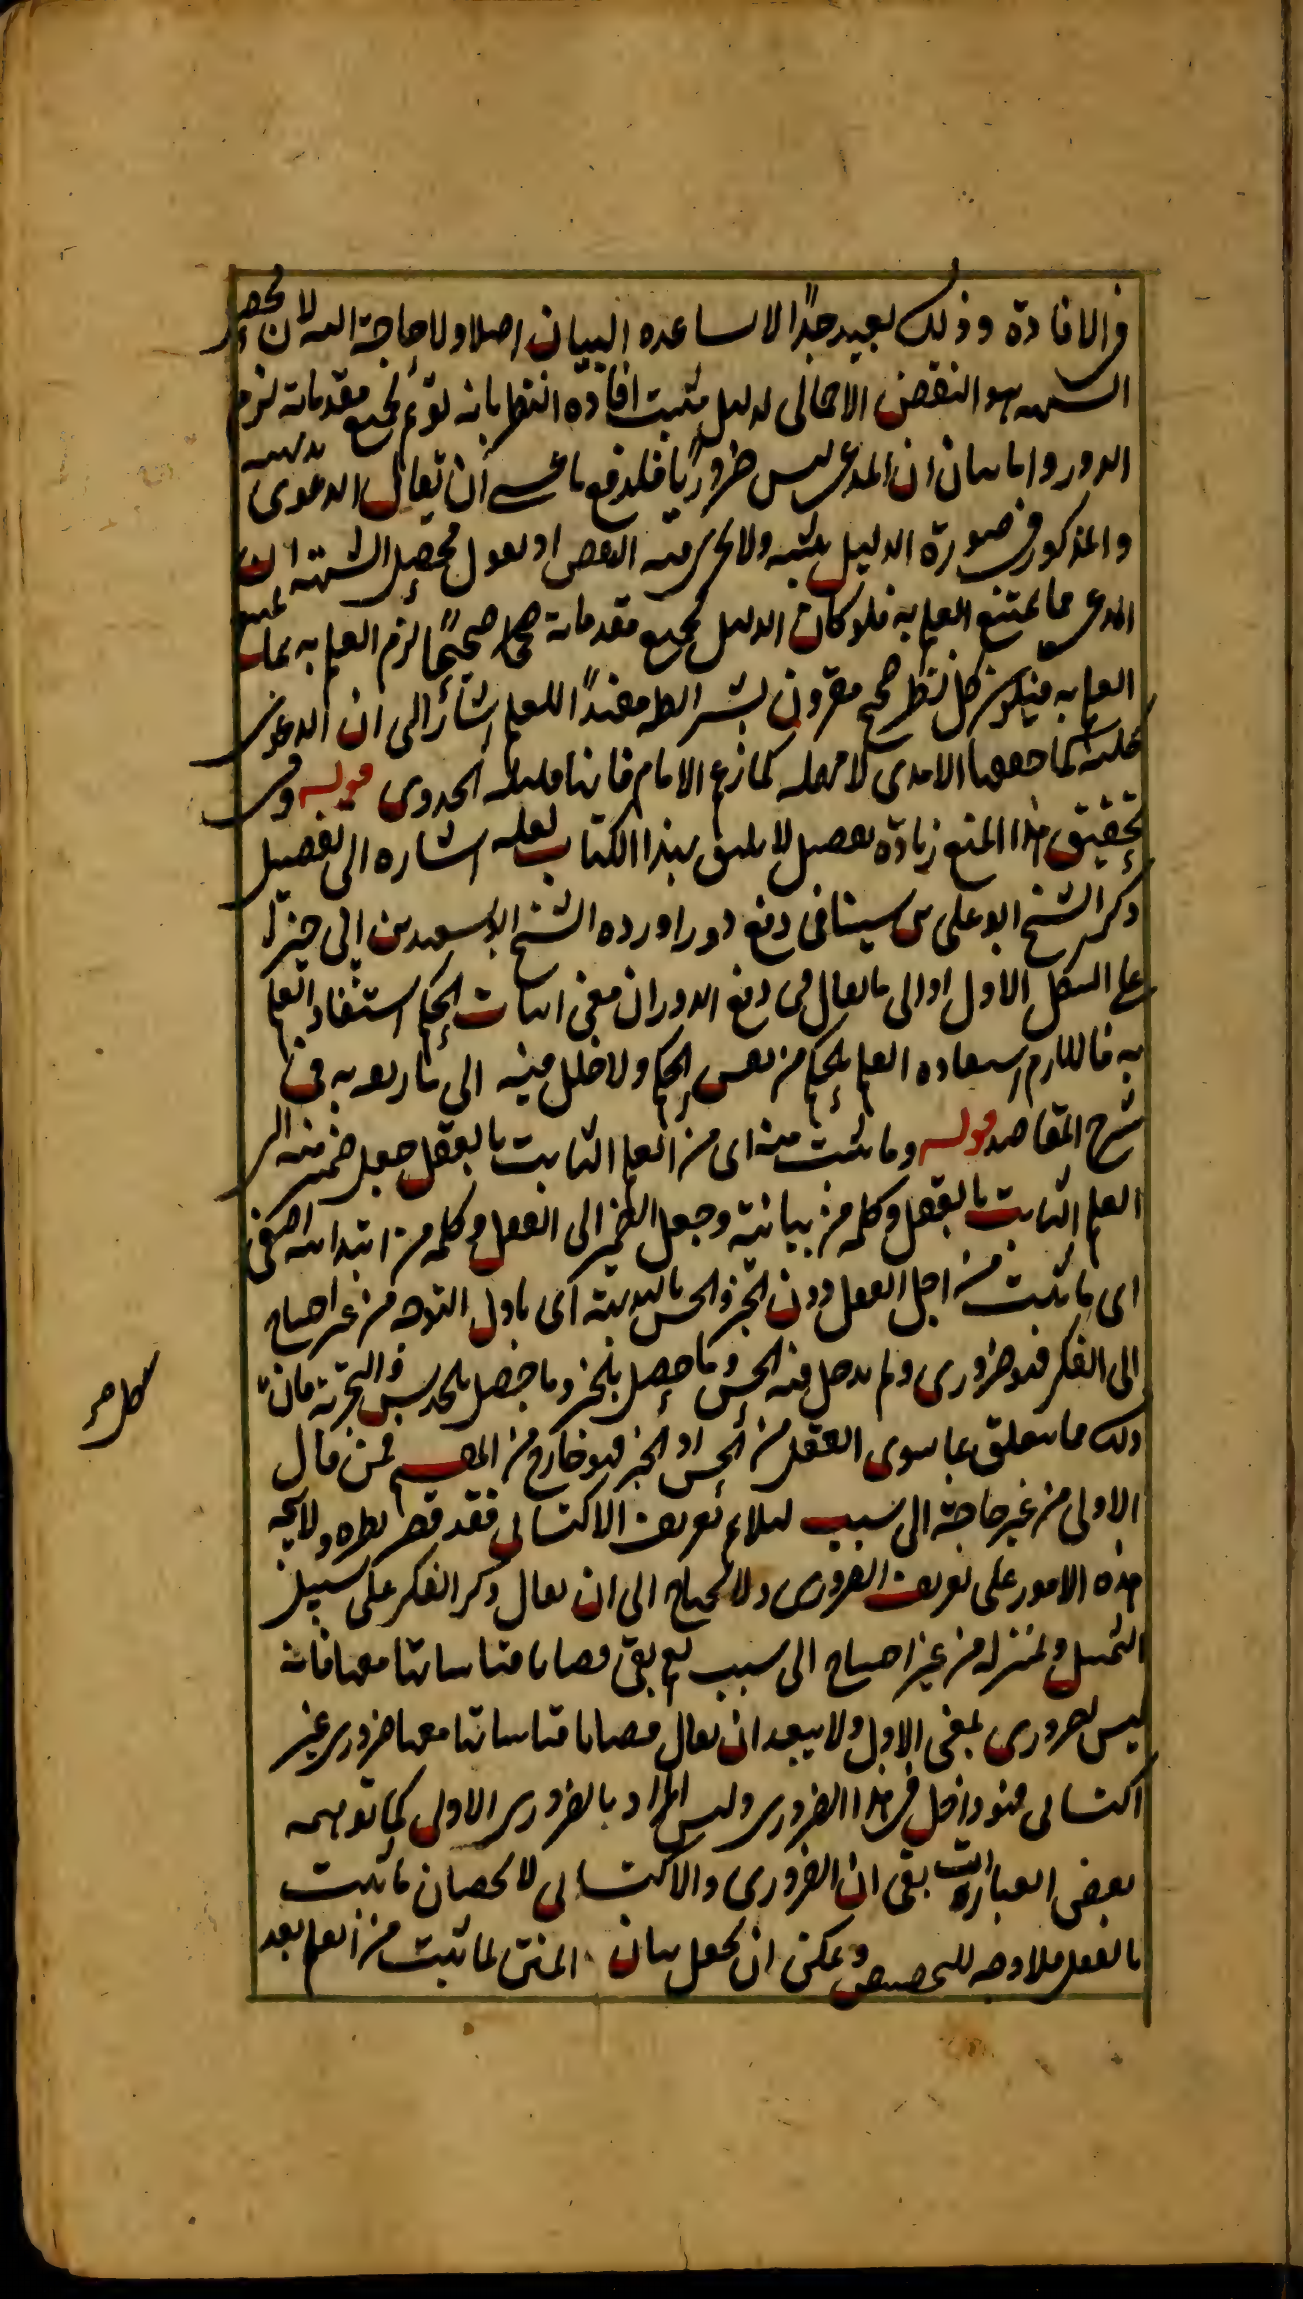 في الافادة وذلك بعيد جدا لا يساعده البيان اصلا ولا حاجة اليه لان محصل
الشبهة هو النقض الاجمالي لدليل مثبت افادة النظر بانه لو تم بجميع مقدماته لزم
الدور واما بيان ان المدعى ليس ضروريا فلدفع ما عسى ان يقال الدعوى بديهية
والمذكور في صورة الدليل تنبيه ولا يجري فيه النقض او نقول محصل الشبهة ان
المدعى مما يمتنع العلم به فلو كان الدليل بجميع مقدماته صحيحا لزم العلم به بما يمتنع
العلم به فيكون كل نظر صحيح مقرون بشرائطه مفيدا للعلم اشار الى ان الدعوى
كلية كما جعلها الامدي لا مهملة كما زعم الامام فانها قليلة الجدوى قوله وفي
تحقيق هذا المنع زيادة تفصيل لا يليق بهذا الكتاب لعله اشارة الى تفصيل
ذكر الشيخ ابو علي بن سينا في دفع دور اورده الشيخ ابو سعيد بن ابي خير
على الشكل الاول او الى ما يقال في دفع الدور ان معنى اثبات الحكم استفاد العلم
به فاللازم استفادة العلم بالحكم من نفس الحكم ولا خلل فيه الى ما ربعه به في
شرح المقاصد قوله وما يثبت منه اي من العلم الثابت بالعقل جعل ضمير منه الى
العلم الثابت بالعقل وكلمة من بيانية وجعل الضمير الى العقل وكلمة من ابتدائية
اي ما يثبت من اجل العقل دون الخبر والحس بالبديهة اي باول التوجه من غير احتياج
الى الفكر فهو ضروري ولم يدخل فيه الحس وما حصل بالخبر وما حصل بالحدس والتجربة فان
ذلك مما يتعلق بما سوى العقل من الحس او الخبر فهو خارج من المقسم فمن قال
الاولى من غير حاجة الى سبب ليلائم تعريف الاكتسابي فقد قصر نظره ولا يتجه
هذه الامور على تعريف الضروري ولا يحتاج الى ان يقال ذكر الفكر على سبيل
التمثيل ولمنزلة من غير احتياج الى سبب نعم بقي قضايا قياساتها معها فانه
ليس بضروري بمعنى الاول ولا يبعد ان يقال قضايا قياساتها معها ضروري غير
اكتسابي فهو داخل في هذا الضروري وليس المراد بالضروري الاولى كما توهمه
بعض العبارات بقي ان الضروري والاكتسابي لا يختصان بما يثبت
بالعقل فلا وجه للتخصيص ويمكن ان يجعل بيان المتن لما يثبت من العلم بعد